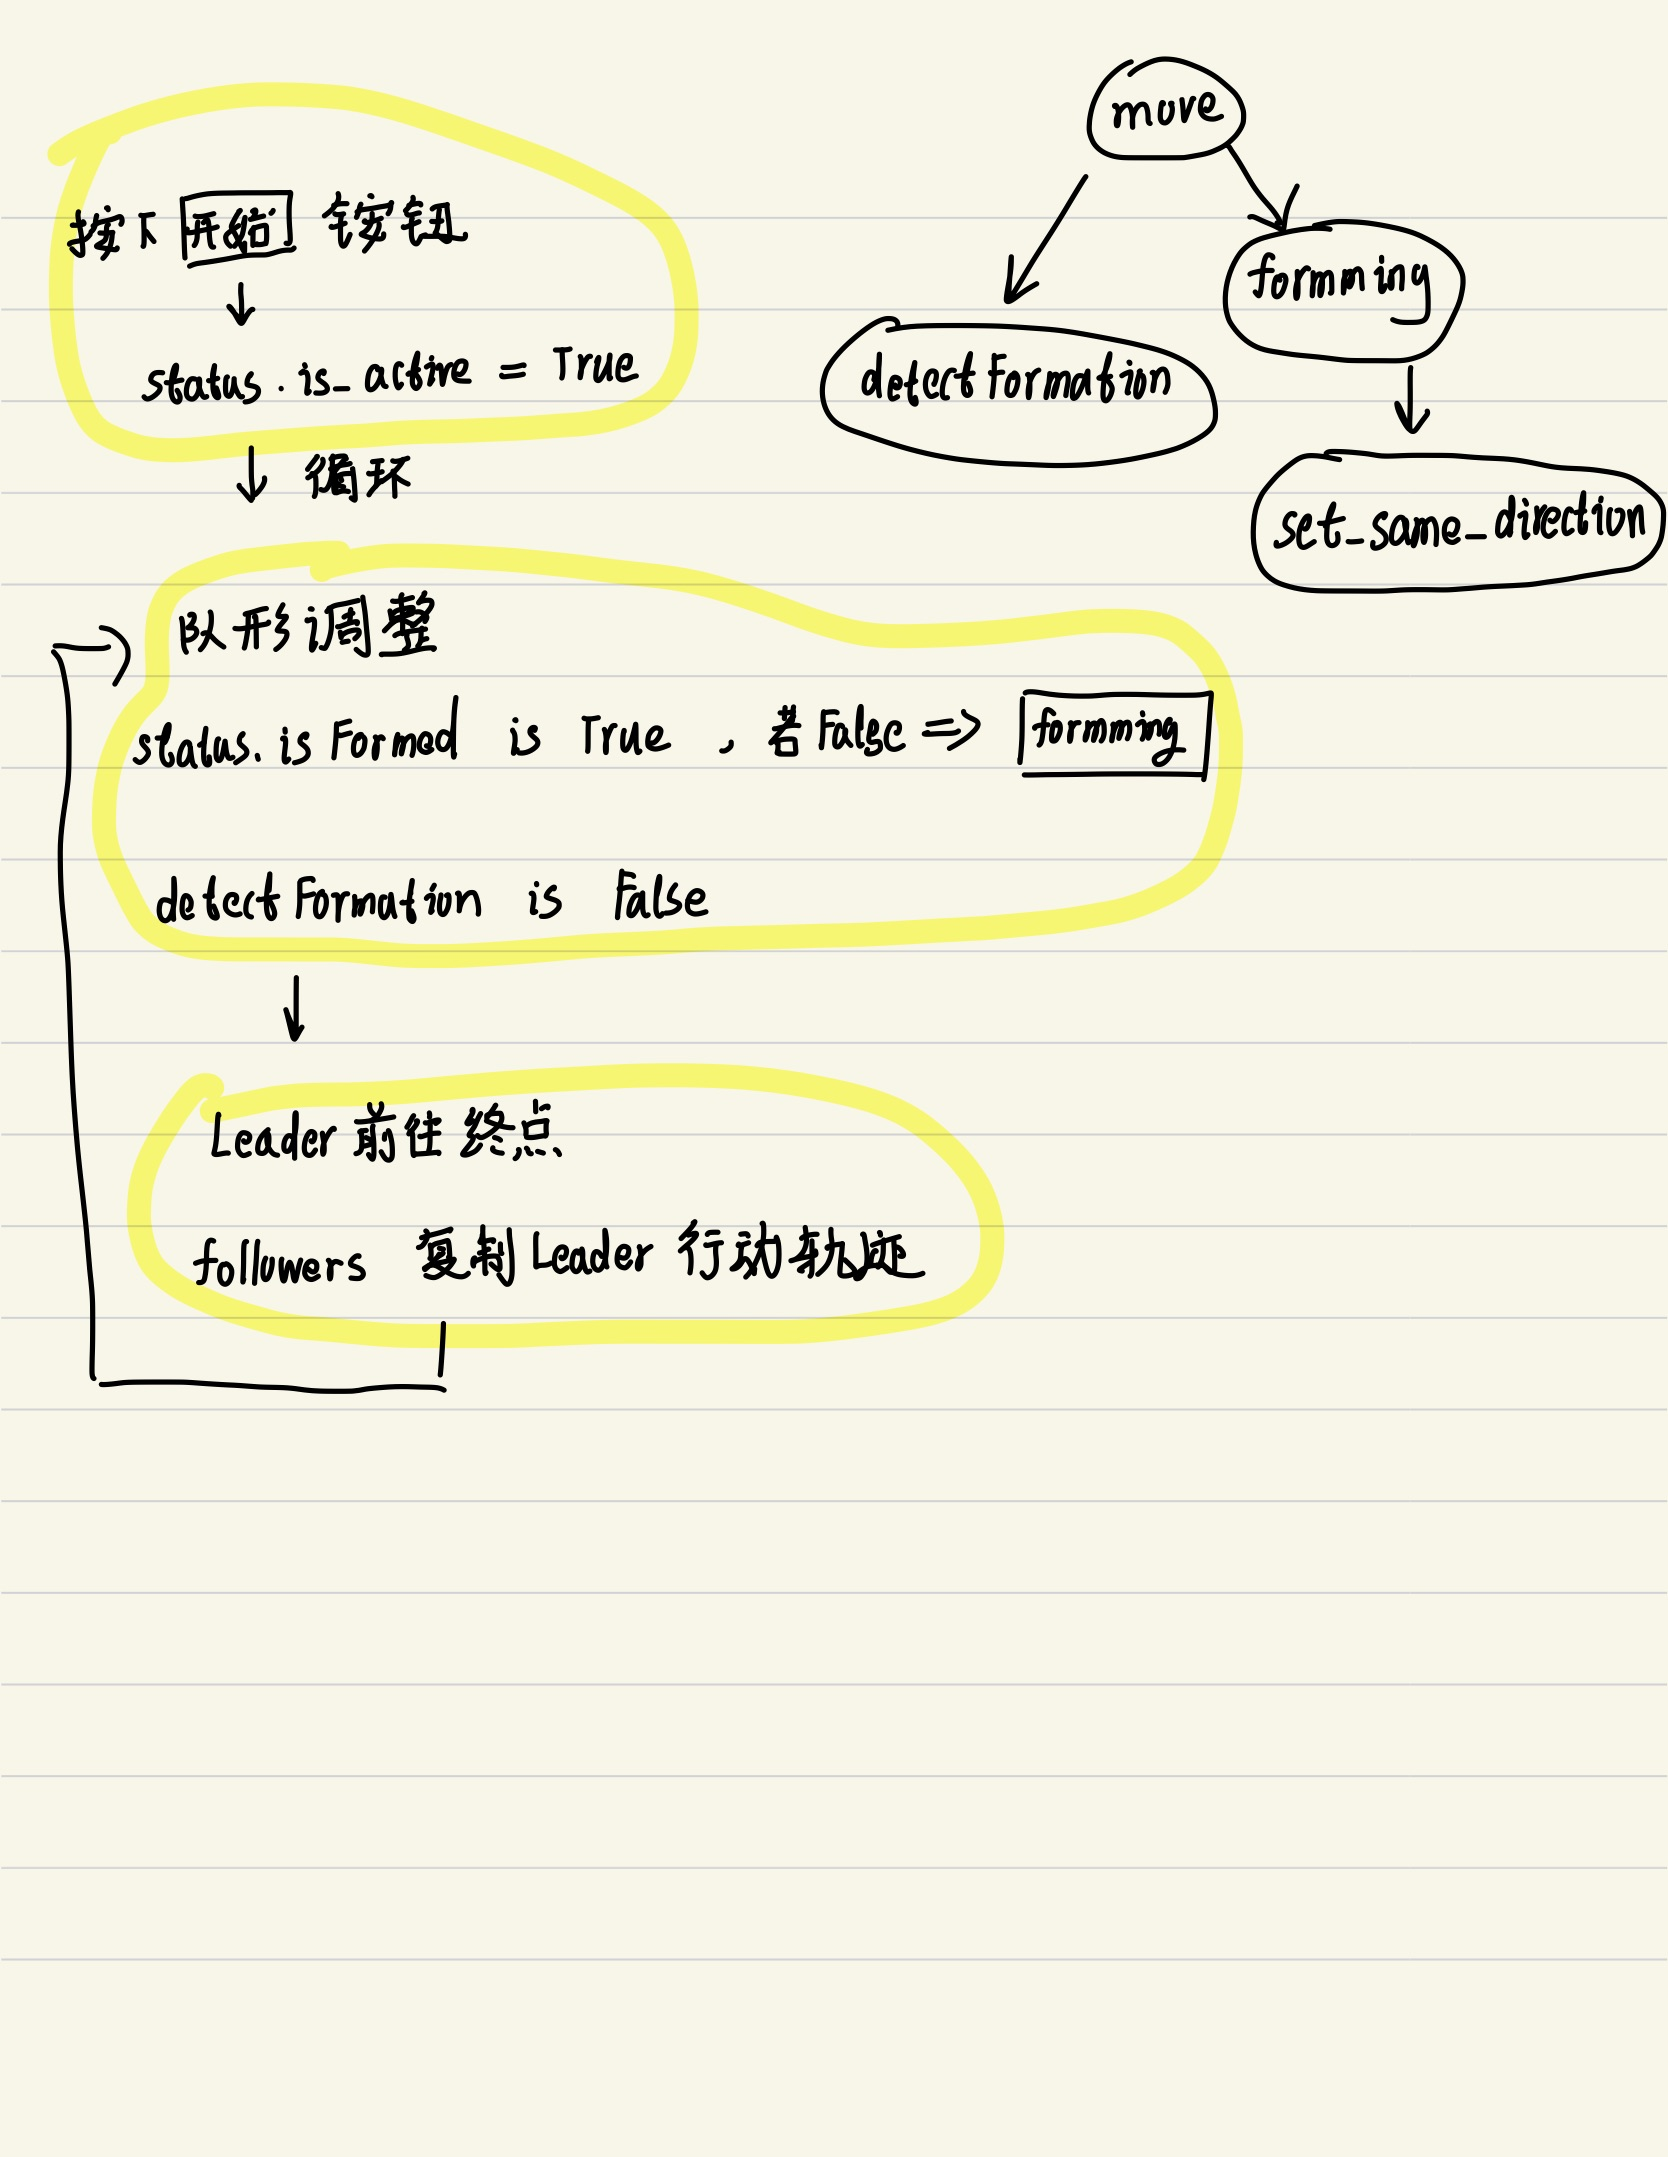 按下 开始 铵钮
status.is_active = True
循环
队形调整
status.isFormed is True , 若False => formming
detectFormation is False
Leader前往终点
followers 复制Leader行动轨迹
move
formming
detectFormation
set_same_direction